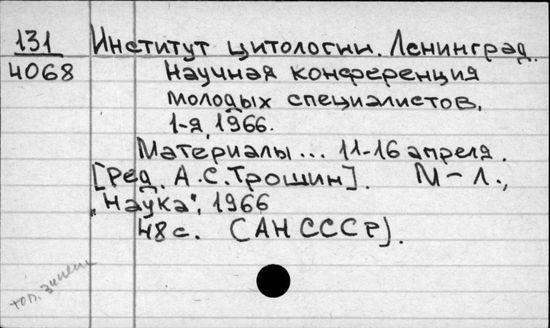 131 Институт цитологии. Ленинград.
4068 Научная конференция
молодых специалистов,
1-я, 1966.
Материалы... 11-16 апреля.
[Ред. А.С.Трошин]. М-Л.,
„Наука", 1966
48 с. (АН СССР).
топ.